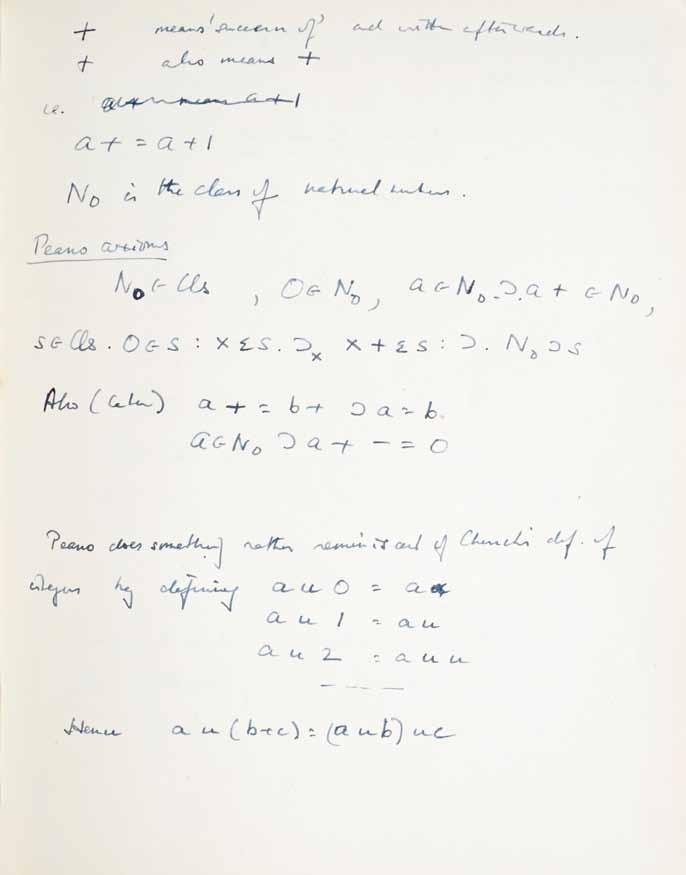 + means 'successor of' and written afterwards.
+ also means +
i.e. a+ means a+1
a+ = a+1
N₀ is the class of natural numbers.
Peano axioms
N₀ ϵ Cls , 0 ϵ N₀ , a ϵ N₀ .Ɔ. a + ϵ N₀ ,
s ϵ Cls . 0 ϵ s : x ε s . Ɔₓ x + ε s : Ɔ. N₀ Ɔ s
Also (later) a + = b + Ɔ a = b.
a ϵ N₀ Ɔ a + - = 0
Peano does something rather reminiscent of Church's def. of
integers by defining a u 0 = a
a u 1 = a u
a u 2 = a u u
- - - -
Hence a u (b+c) = (a u b) u c